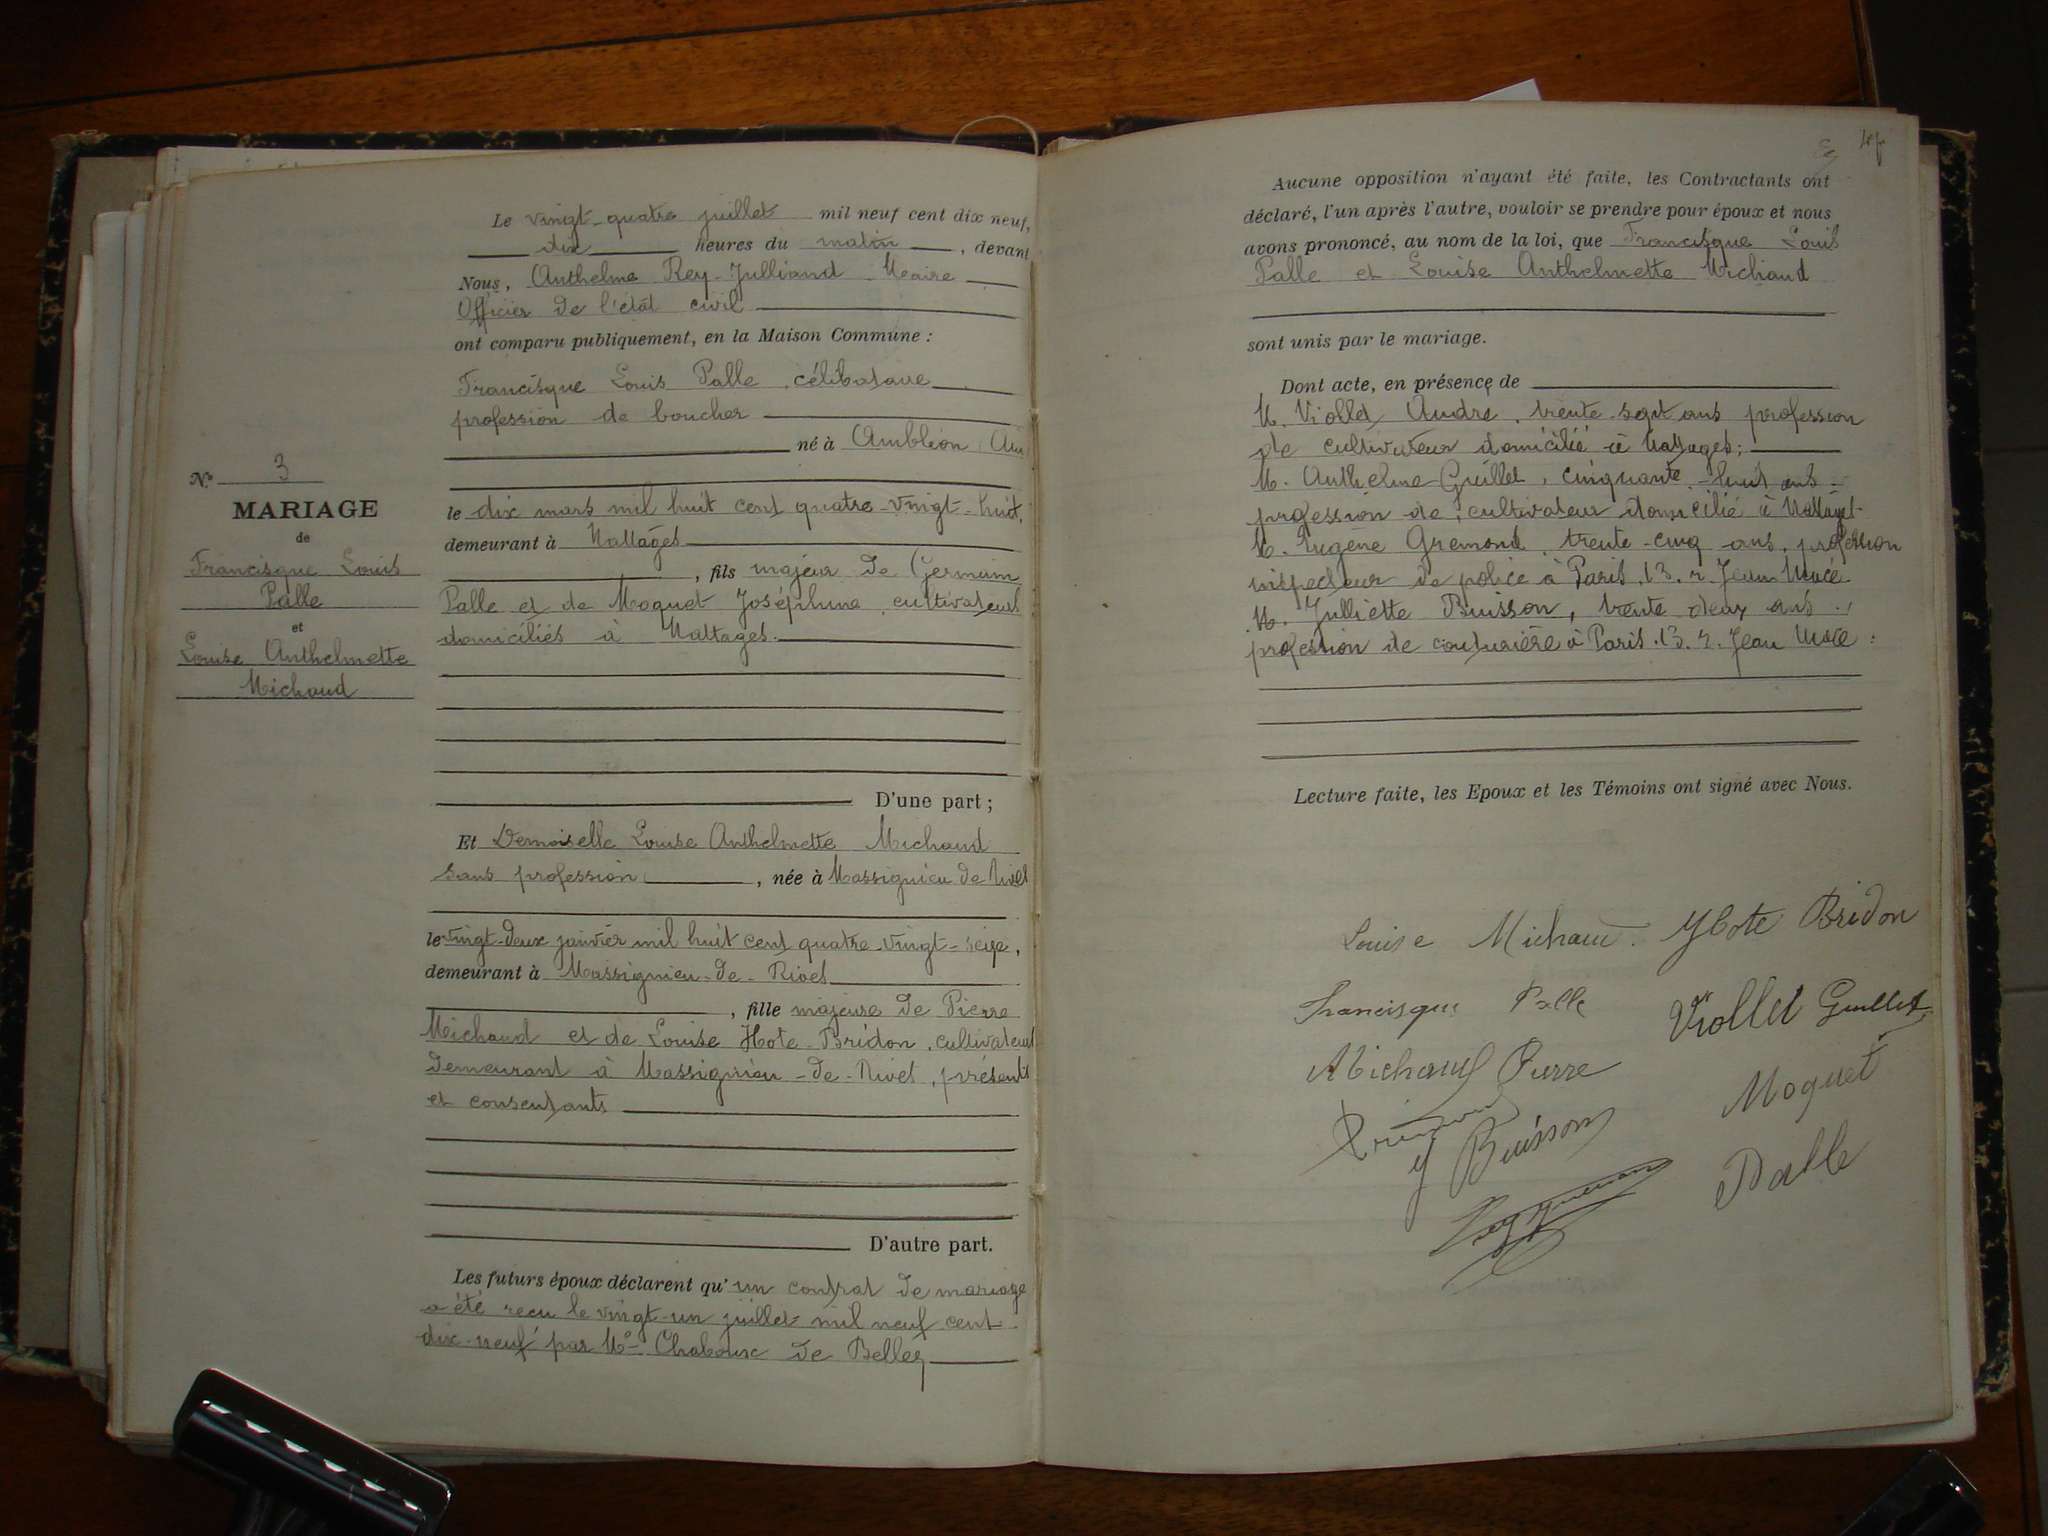 N.° 3
MARIAGE
de
Francisque Louis
Palle
et
Louise Anthelmette
Michaud
Le vingt-quatre juillet mil neuf cent dix neuf,
dix heures du matin, devant
Nous, Anthelme Rey-Julliand Maire
Officier de l'état civil
ont comparu publiquement, en la Maison Commune :
Francisque Louis Palle, célibataire
profession de boucher
né à Ambléon (Ain
le dix mars mil huit cent quatre-vingt-huit,
demeurant à Nattages
, fils majeur de Germain
Palle et de Moquet Joséphine, cultivateurs
domiciliés à Nattages.
D'une part ;
Et Demoiselle Louise Anthelmette Michaud
sans profession, née à Massignieu de Rives
le vingt-deux janvier mil huit cent quatre-vingt-seize,
demeurant à Massignieu-de-Rives
, fille majeure de Pierre
Michaud et de Louise Hote-Bridon, cultivateurs
demeurant à Massignieu-de-Rives, présents
et consentants
D'autre part.
Les futurs époux déclarent qu'un contrat de mariage
a été reçu le vingt-un juillet mil neuf cent
dix-neuf par Me Chaboux de Belley
Aucune opposition n'ayant été faite, les Contractants ont
déclaré, l'un après l'autre, vouloir se prendre pour époux et nous
avons prononcé, au nom de la loi, que Francisque Louis
Palle et Louise Anthelmette Michaud
sont unis par le mariage.
Dont acte, en présence de
M. Viollet André, trente-sept ans profession
de cultivateur domicilié à Nattages;
M. Anthelme Guillet, cinquante-huit ans
profession de cultivateur domicilié à Nattages
M. Eugène Gremond, trente-cinq ans, profession
inspecteur de police à Paris, 13. r. Jean Macé.
M. Julliette Buisson, trente deux ans,
profession de couturière à Paris. 13. r. Jean Macé.
Lecture faite, les Epoux et les Témoins ont signé avec Nous.
Louise Michaud. Hote Bridon
Francisque Palle Viollet Guillet
Michaud Pierre
Moquet
J Buisson
Palle